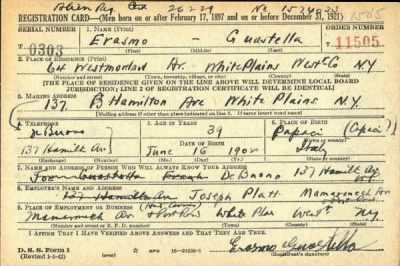 Alien Reg. 26229 No. 1574923 1505
REGISTRATION CARD—(Men born on or after February 17, 1897 and on or before December 31, 1921)
SERIAL NUMBER 1. NAME (Print) ORDER NUMBER
T 0303 Erasmo - Guastella 11505
(First) (Middle) (Last)
2. PLACE OF RESIDENCE (Print)
64 Westmorland Av. White Plains West. NY
(Number and street) (Town, township, village, or city) (County) (State)
[THE PLACE OF RESIDENCE GIVEN ON THE LINE ABOVE WILL DETERMINE LOCAL BOARD
JURISDICTION; LINE 2 OF REGISTRATION CERTIFICATE WILL BE IDENTICAL]
3. MAILING ADDRESS
137 Hamilton Ave White Plains N.Y.
[Mailing address if other than place indicated on line 2. If same insert word same]
4. TELEPHONE 5. AGE IN YEARS 6. PLACE OF BIRTH
De Buono 39 Capaci (Capaci)
DATE OF BIRTH
137 Hamilth Av. June 16 1902 Italy
7. NAME AND ADDRESS OF PERSON WHO WILL ALWAYS KNOW YOUR ADDRESS
Joe Guastella Frank De Buono 137 Hamilt Av
8. EMPLOYER'S NAME AND ADDRESS
137 Hamilton Av Joseph Platt Mamaroneck Av
9. PLACE OF EMPLOYMENT OR BUSINESS
Mamaroneck Av White Plai West. N.Y.
(Number and street or R. F. D. number) (Town) (County) (State)
I AFFIRM THAT I HAVE VERIFIED ABOVE ANSWERS AND THAT THEY ARE TRUE.
D. S. S. Form 1
(Revised 1-1-42) GPO 16—21630-1 Erasmo Guastella